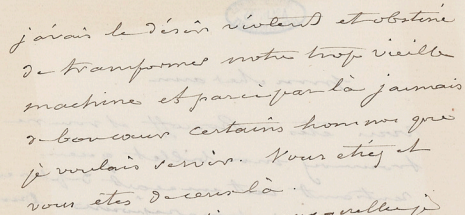 j'avais le désir violent et obstiné
de transformer notre trop vieille
machine et parci parlà j'aimais
de bon cœur certains hommes que
je voulais servir. Vous étiez et
vous êtes de ceux là.